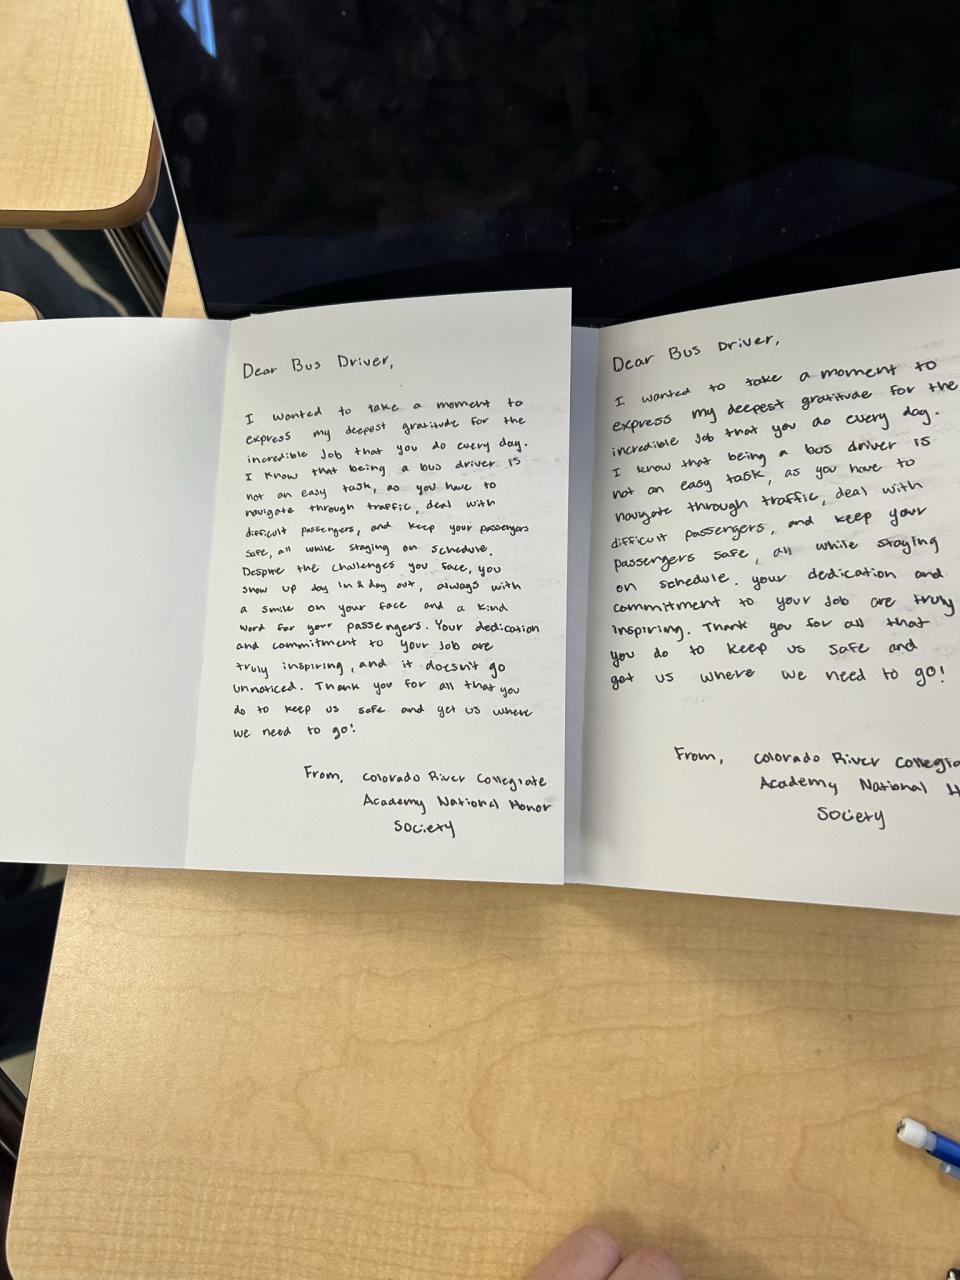 Dear Bus Driver,
I wanted to take a moment to
express my deepest gratitude for the
incredible Job that you do every day.
I know that being a bus driver is
not an easy task, as you have to
navigate through traffic, deal with
difficult passengers, and keep your passengers
safe, all while staying on schedule.
Despite the challenges you face, you
show up day in & day out, always with
a smile on your face and a kind
word for your passengers. Your dedication
and commitment to your Job are
truly inspiring, and it doesn't go
unnoticed. Thank you for all that you
do to keep us safe and get us where
we need to go!
From, Colorado River Collegiate
Academy National Honor
Society
Dear Bus Driver,
I wanted to take a moment to
express my deepest gratitude for the
incredible Job that you do every day.
I know that being a bus driver is
not an easy task, as you have to
navigate through traffic, deal with
difficult passengers, and keep your
passengers safe, all while staying
on schedule. your dedication and
commitment to your Job are truly
inspiring. Thank you for all that
you do to keep us safe and
get us where we need to go!
From, Colorado River
Academy National
Society